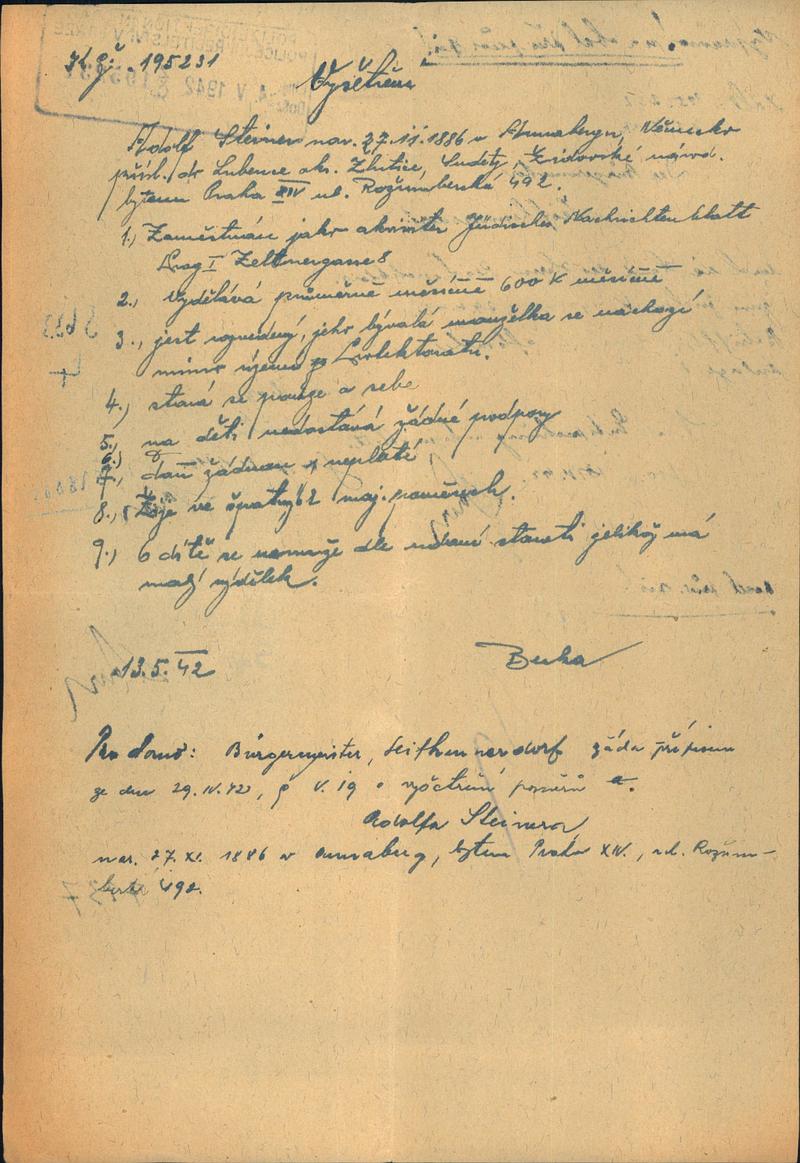 K č. 195231
Vyšetření
Adolf Steiner nar. 27.11.1886 v Annabergu, Německo
přísl. do Lubence okr. Žlutice, Sudety, židovské národ.
bytem Praha XIV ul. Rožumberská 492.
1., Zaměstnán jako akvisiter Jüdisches Nachrichtenblatt
Prag I Zeltnergasse 8
2., vydělává průměrně měsíčně 600 K měsíčně
3., jest rozvedený, jeho bývalá manželka se nachází
mimo území Protektorátu.
4.) stará se pouze o sebe
5., na děti nedostává žádné podpory
6.)
7., daň žádnou neplatí
8., Žije ve špatných maj. poměrech.
9.) O dítě se nemůže dle udání starati jelikož má
malý výdělek.
13.5.42
Pro domo: Bürgermeister, Seifhennersdorf žádá přípisem
ze dne 29.IV.42, č V. 19 o vyšetření poměrů
Adolfa Steinera,
nar. 27. XI. 1886 v Annaberg, bytem Praha XIV., ul. Rožum-
berk 492.